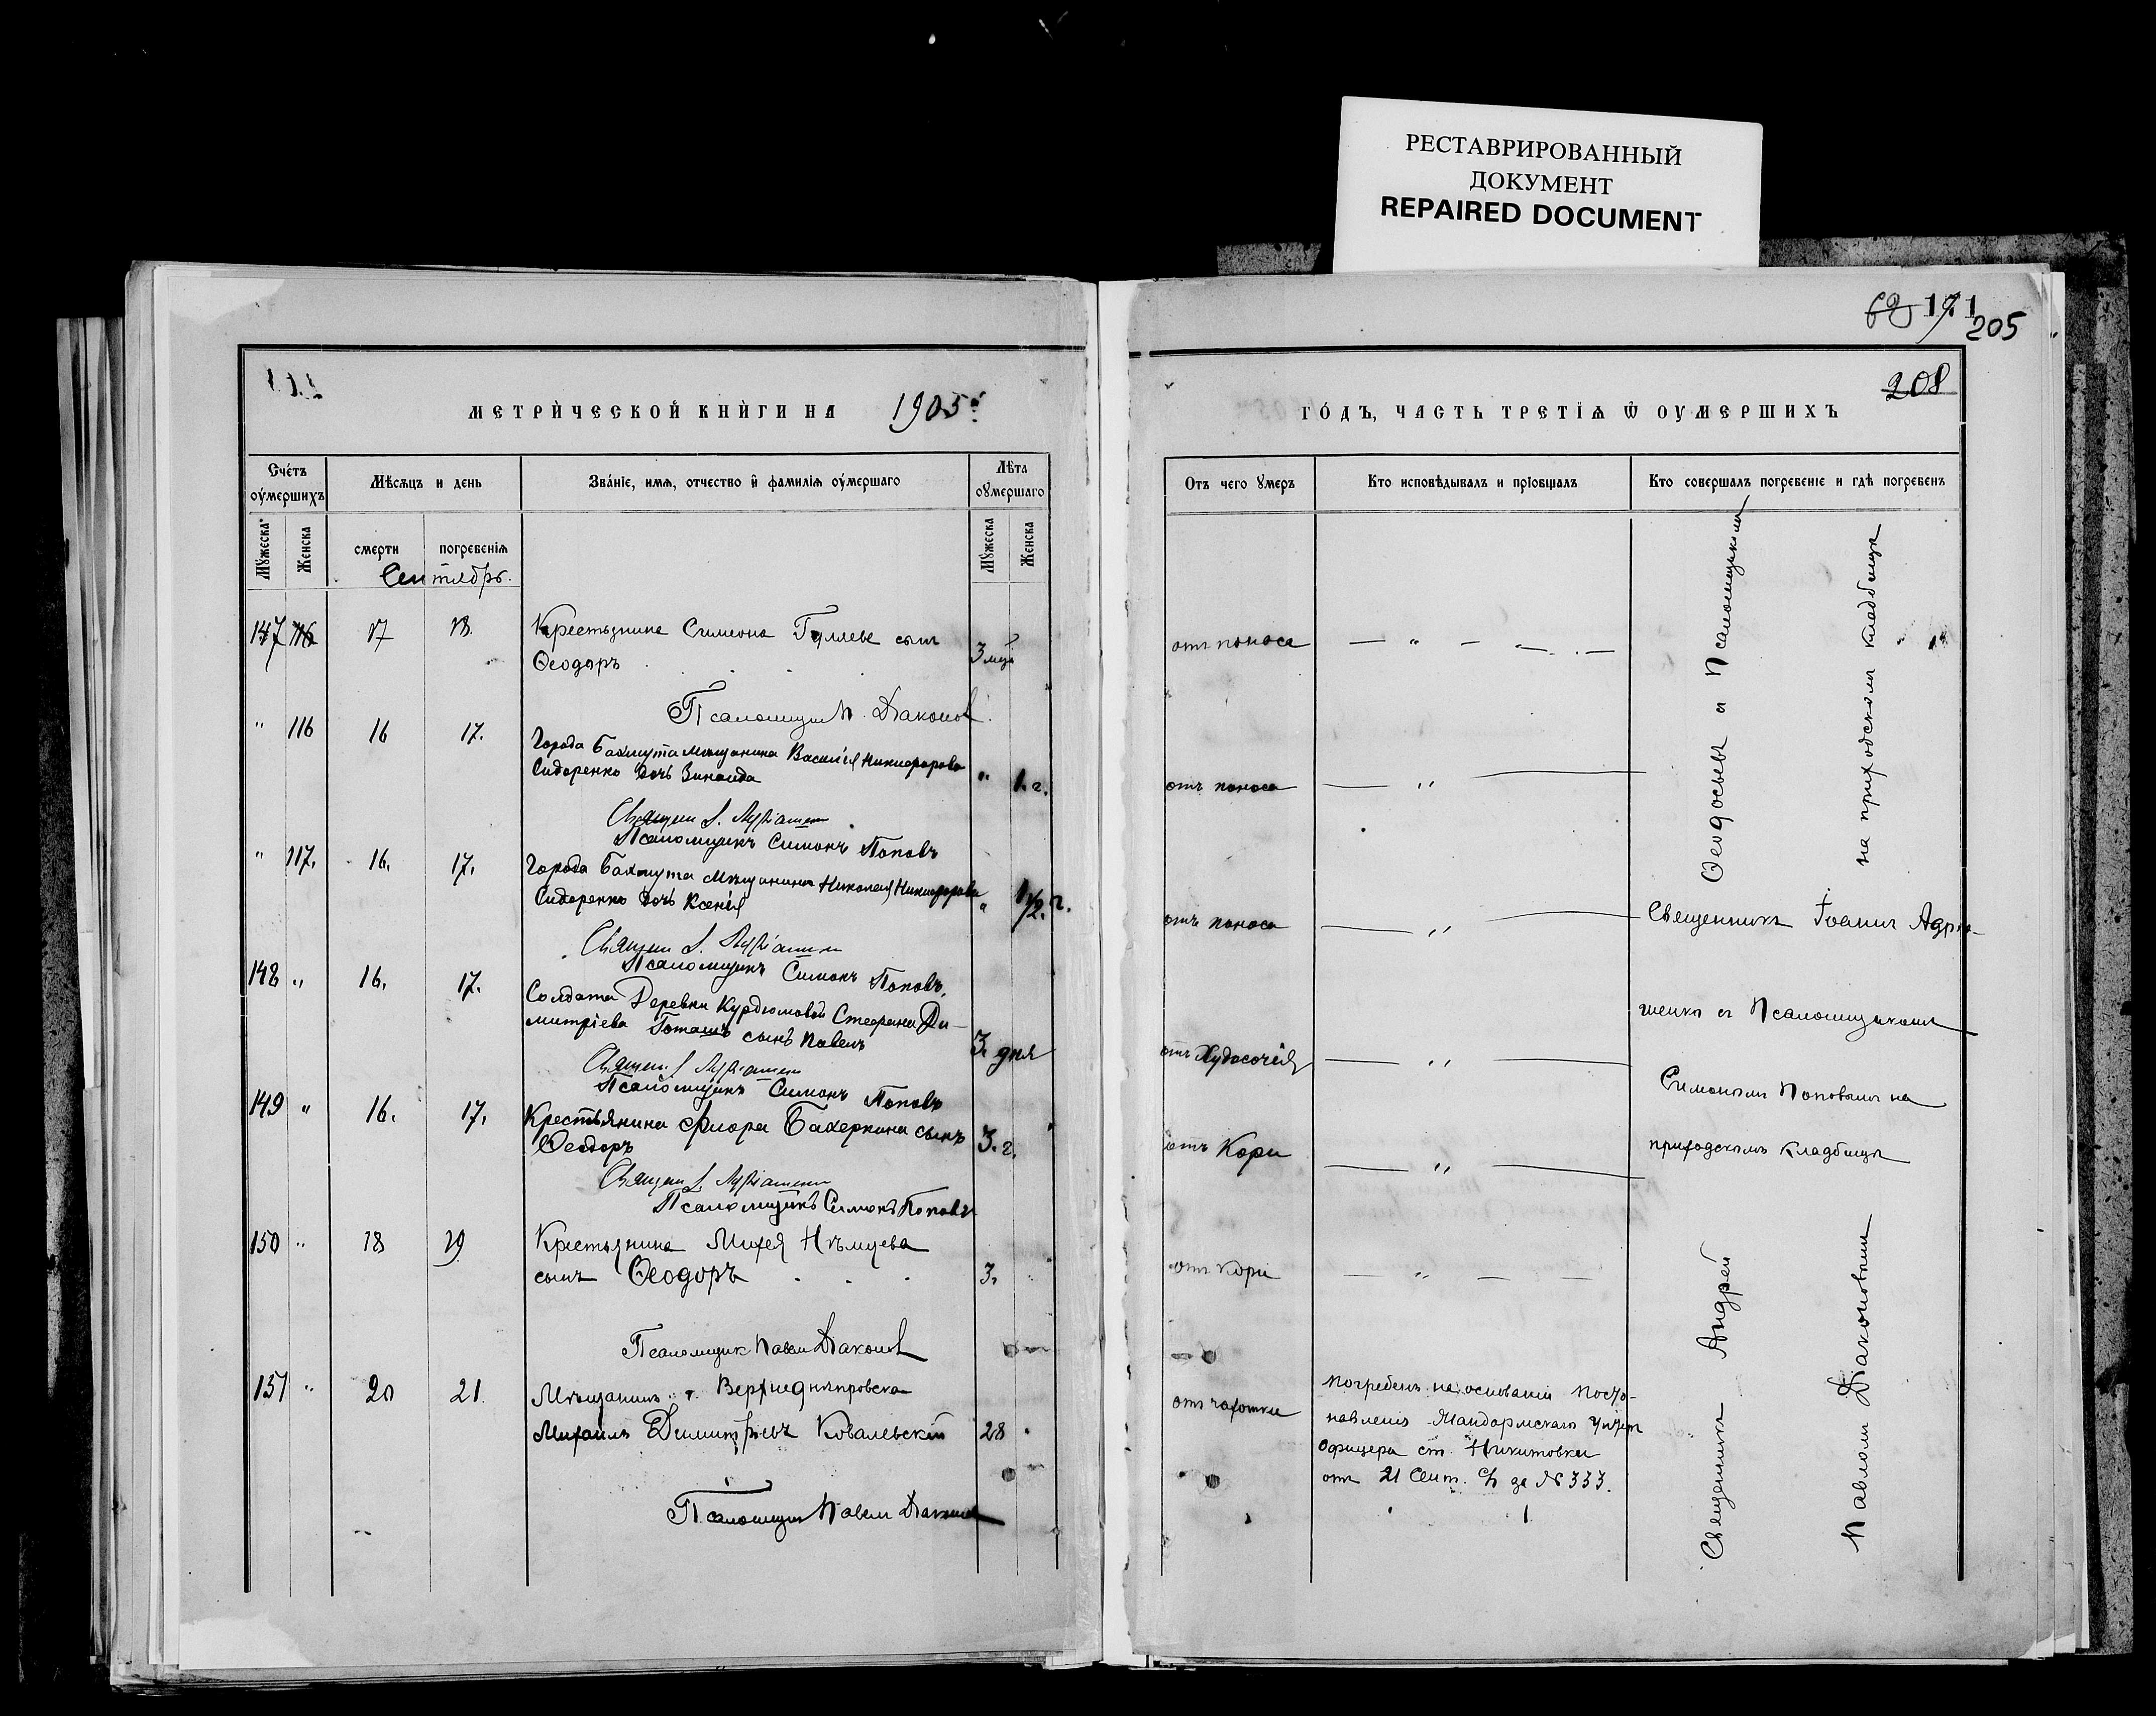 РЕСТАВРИРОВАННЫЙ
ДОКУМЕНТ
REPAIRED DOCUMENT
171
205
208
МЕТРИЧЕСКОЙ КНИГИ НА 1905 ГОДЪ, ЧАСТЬ ТРЕТІЯ Ѿ ОУМЕРШИХЪ
Счетъ оумершихъ
Мѣсяцъ и день
Званіе, имя, отчество и фамилія оумершаго
Лѣта оумершаго
Отъ чего умеръ
Кто исповѣдывалъ и пріобщалъ
Кто совершалъ погребеніе и гдѣ погребенъ
Мужеска
Женска
смерти
погребенія
Мужеска
Женска
Сентябрь.
147 17 18. Крестьянина Симеона сынъ
Ѳеодоръ 3 мца
отъ поноса
Псаломщикъ П. Діаконовъ
" 116 16 17. Города Бахмута мѣщанина Василія Никифорова
Сидоренко дочь Зинаида " 1 г.
отъ поноса — " —
Священ. І.
Псаломщикъ Симонъ Поповъ
" 117. 16. 17. Города Бахмута мѣщанина Николая Никифорова
Сидоренко дочь Ксенія " 1/2 г.
отъ поноса — " —
Священ. І.
Псаломщикъ Симонъ Поповъ.
148 " 16. 17. Солдата Деревни Курдюмовой Стефана Ди-
митріева сынъ Павелъ 3. дня
отъ Худосочія — " —
Священ. І.
Псаломщикъ Симонъ Поповъ
149 " 16. 17. Крестьянина Флора Бахеркина сынъ
Ѳеодоръ 3. г.
отъ Кори — " —
Священ. І.
Псаломщикъ Симонъ Поповъ
150 " 18 19 Крестьянина Михея Нѣмцева
сынъ Ѳеодоръ 3.
отъ кори — " — —
Псаломщик Павел Діаконов
151 " 20 21. Мѣщанинъ г. Верхнеднѣпровска
Михаилъ Димитріевъ Ковалевскій 28
отъ чахотки
Погребенъ на основаніи Поста-
новленія Жандармскаго Унтеръ
Офицера ст. Никитовки
отъ 21 Сент. за № 333.
Псаломщик Павел Діаконов
Ѳеодосьевъ и Псаломщикомъ
на приходскомъ кладбищѣ
Священникъ Іоаннъ Адріа-
шенко съ Псаломщикомъ
Симономъ Поповымъ на
приходскомъ кладбищѣ
Священникъ Андрей
Павломъ Діаконовымъ